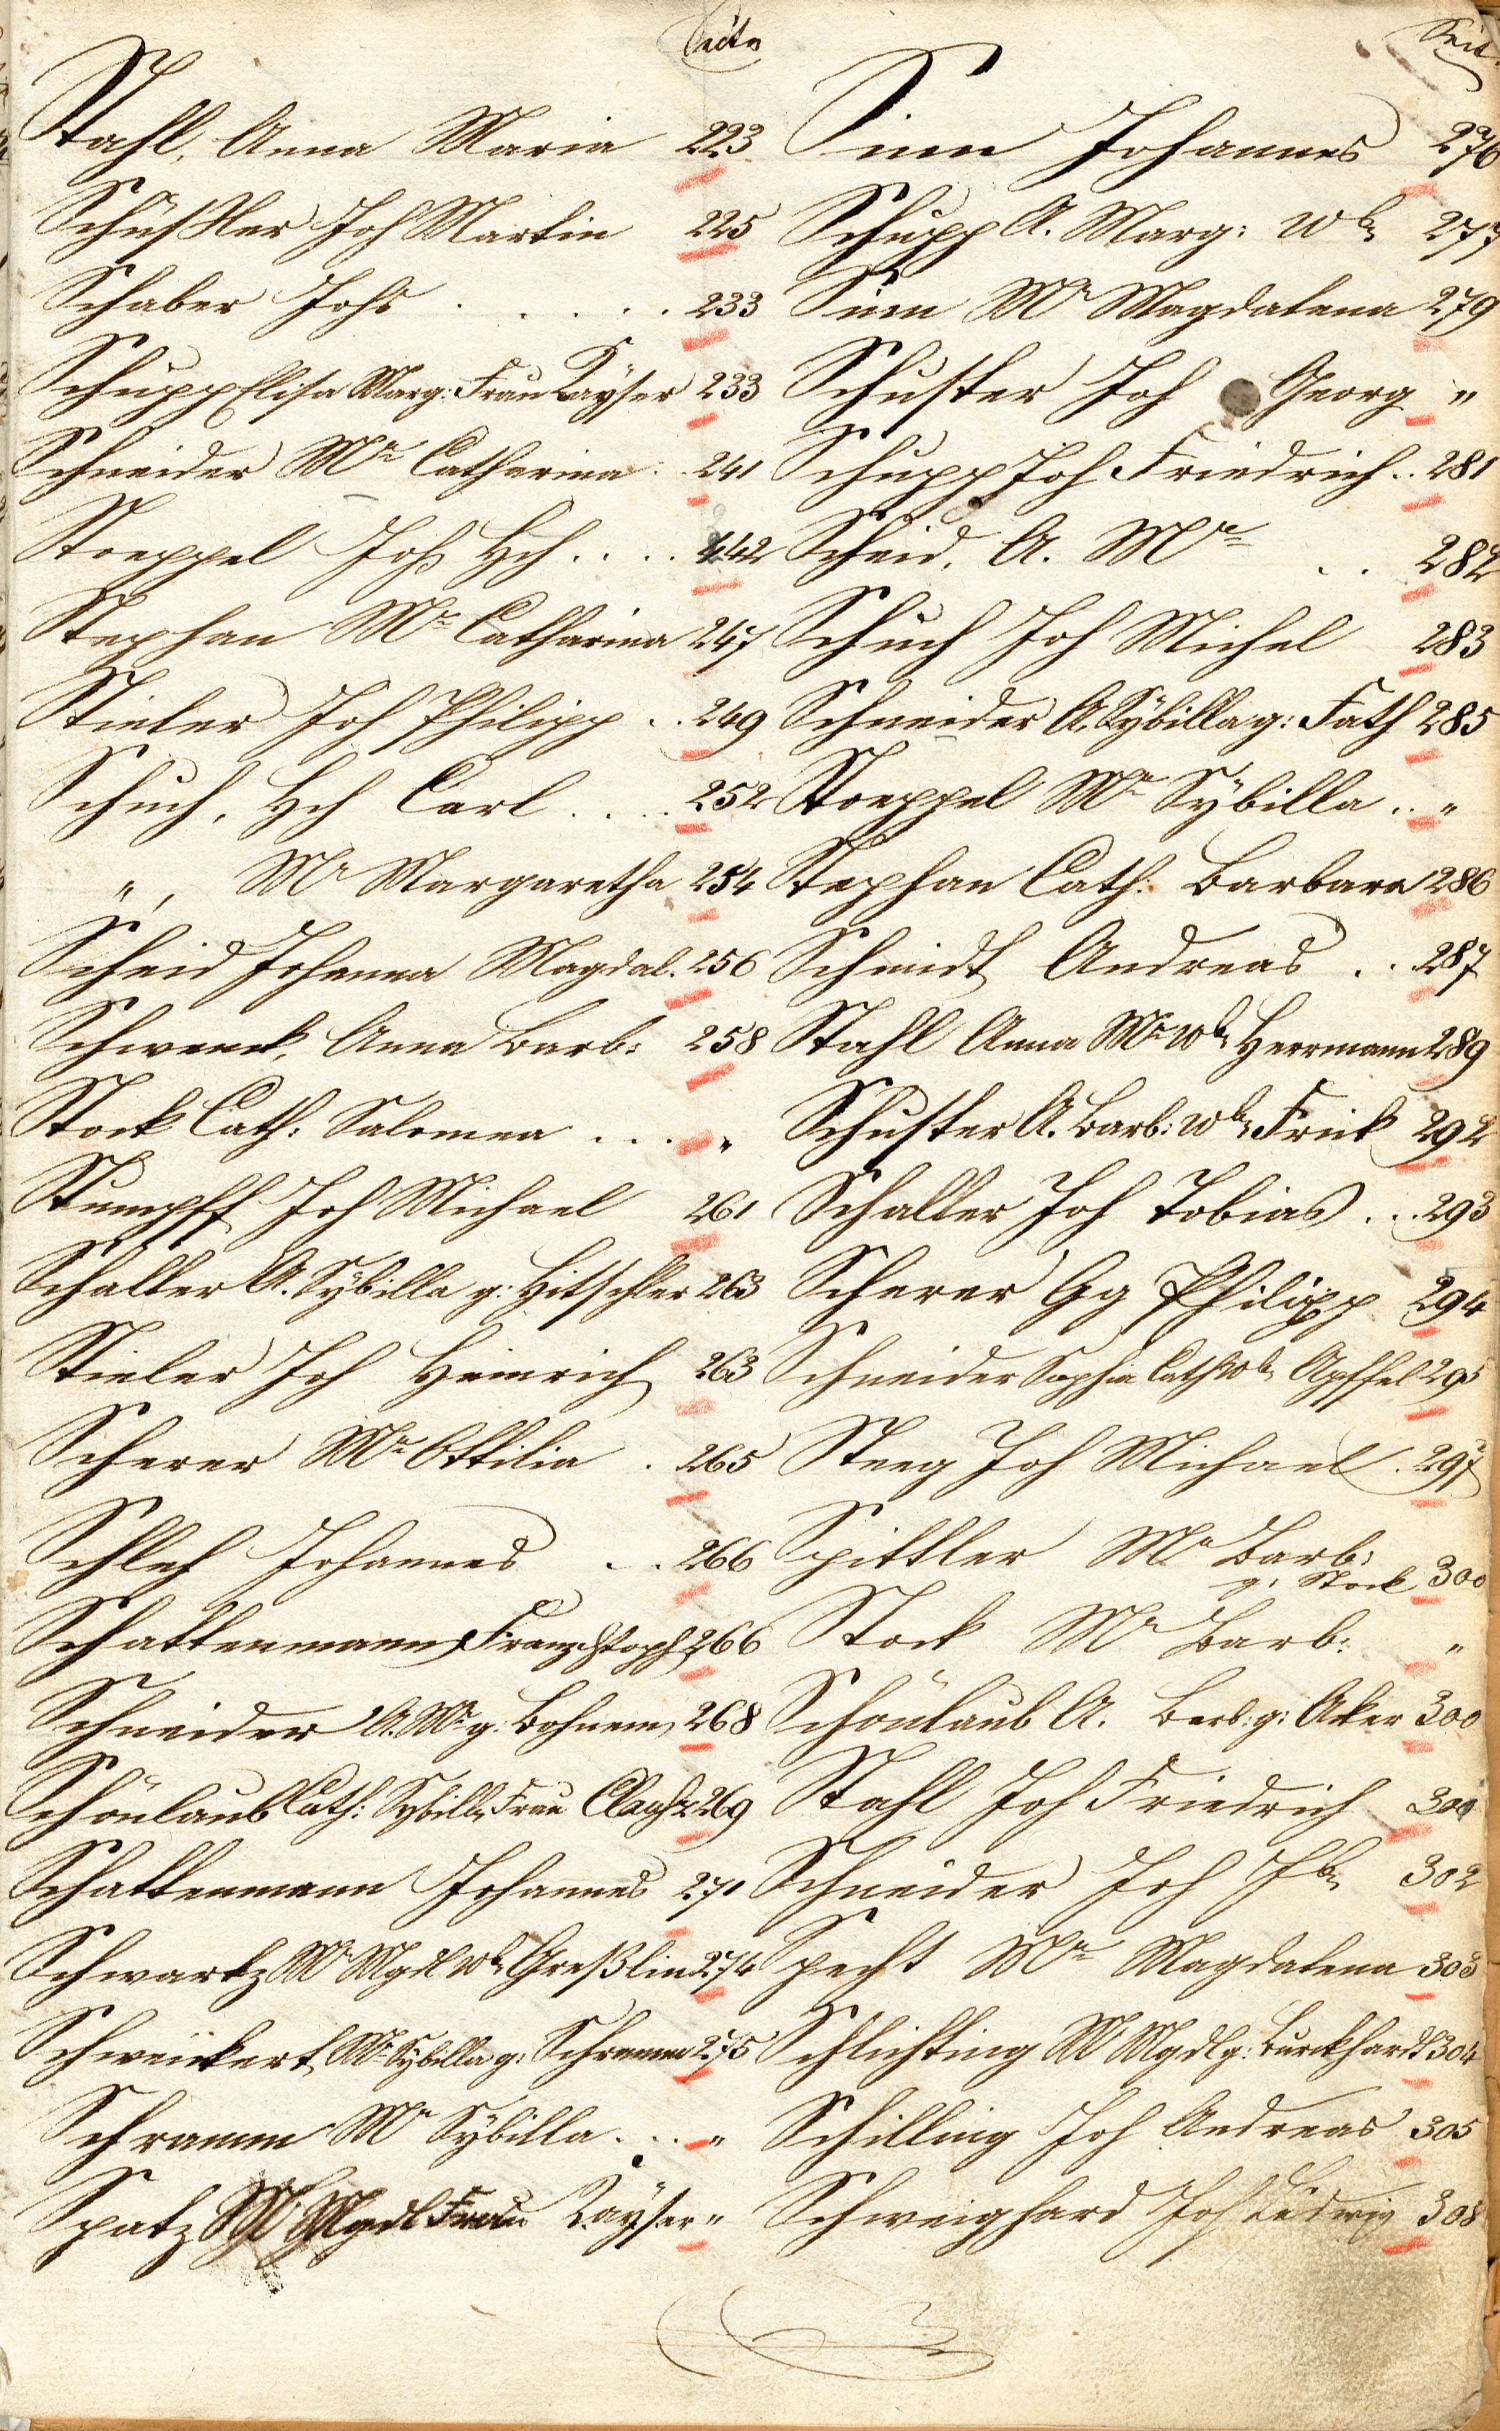 Seite
Stahl, Anna Maria 223
Schüßler Joh Martin 225
Schaber Johs . . . . . 233
Schupp Elisa Marg: Frau Kayser 233
Schneider Ma Catharina . . 241
Stoeppel Johs Hch . . . . 242
Stephan Ma Catharina 247
Stieler Joh Philipp . . 249
Schuch, Hch Carl . . . . 252
" , Ma Margaretha 254
Scheid Johanna Magdal. 256
Schwenck, Anna Barb: 258
Stock Cath: Salomea . . . . "
Stumpff Joh Michael 261
Schaller A. Sÿbilla g: Hitschler 263
Stieler Joh Heinrich 263
Scherer Ma Ottilia . 265
Schleh Johannes . . . 266
Schattenmann Franz Chstoph 266
Schneider A. Ma g: Bohnem 268
Schönlaub Cath: Sÿbilla Frau 269
Schattenmann Johannes 271
Schwartz Ma Mgdl Wb Greßlin 274
Schweickert, Ma Sÿbilla g: Schramm 275
Schramm Ma Sÿbilla . . . "
Spatz Ma Mgdl Frau Kaÿser "
Seite
Johannes 276
Schupp A. Marg: Wb 277
Ma Magdalena 279
Schuster Joh Georg "
Schupp Joh Friedrich . . 281
Scheid, A. Ma . . 282
Schuch Joh Michel 283
Schneider A. Sÿbilla g: Fath 285
Stoeppel Ma Sÿbilla . . "
Stephan Cath: Barbara 286
Schmidt Andreas . . . 287
Stahl Anna Ma Wb Herrmann 289
Schuster A. Barb: Wb Frick 292
Schaller Joh Tobias . . . 293
Scherer Gg Philipp 294
Schneider Sophia Cath Wb Apffel 295
Steeg Joh Michael . 297
Spittler Ma Barb:
g: Stock 300
Stock Ma Barb: "
Schönlaub A. Barb: g: Aker 300
Stahl Joh Friedrich 300
Schneider Joh 302
Specht Ma Magdalena 303
Schlichting M Mgdl g: Burckhardt 304
Schilling Joh Andreas 305
Schweighard Joh Ludwig 308